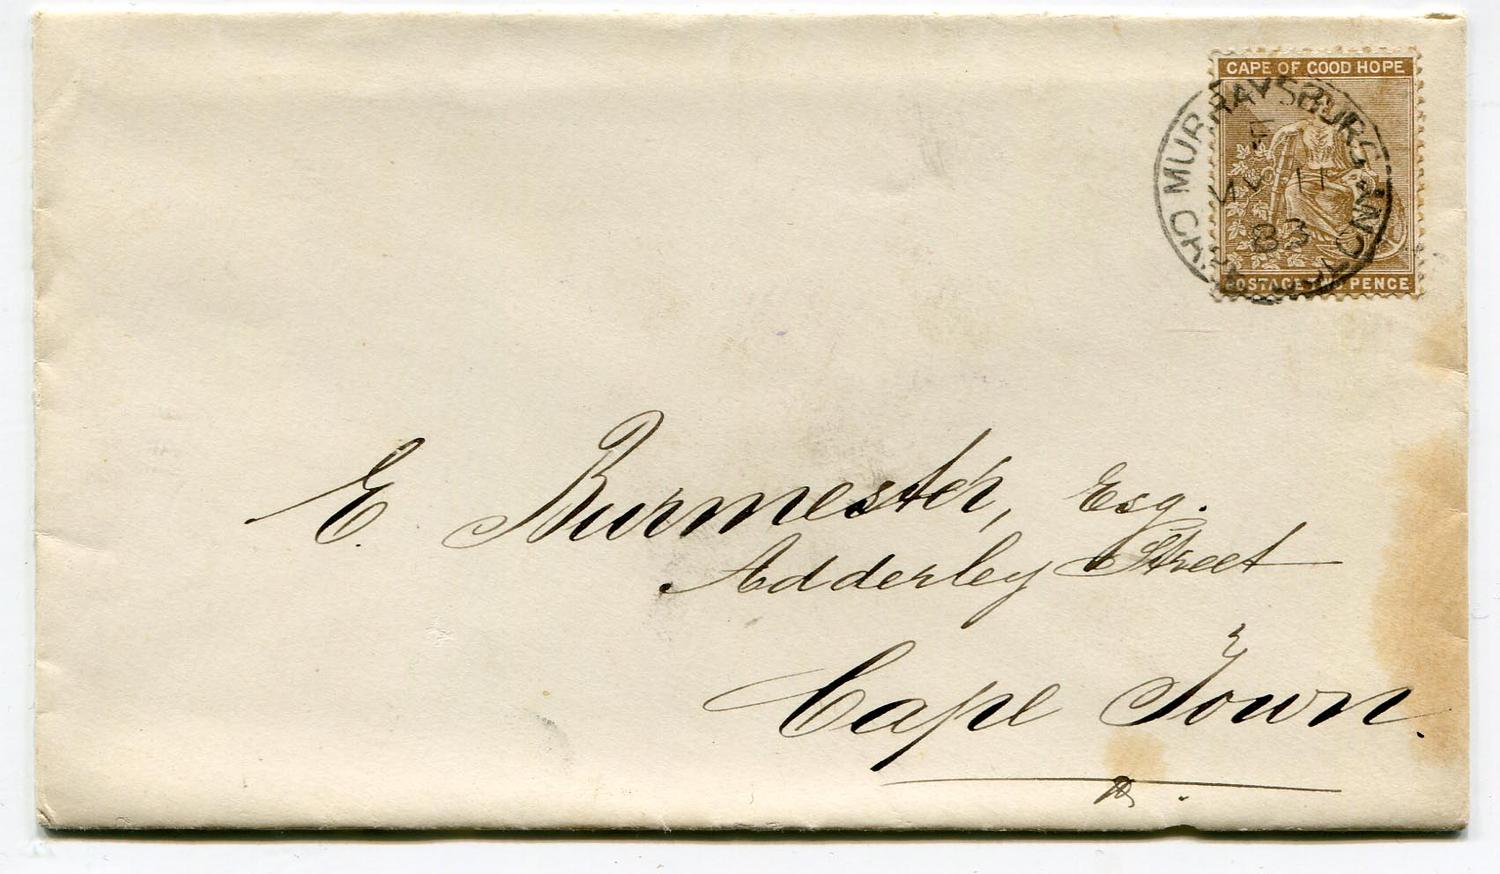 CAPE OF GOOD HOPE
MURRAYSBURG
11
83
POSTAGE TWO PENCE
E. Burmester, Esq.
Adderley Street
Cape Town.